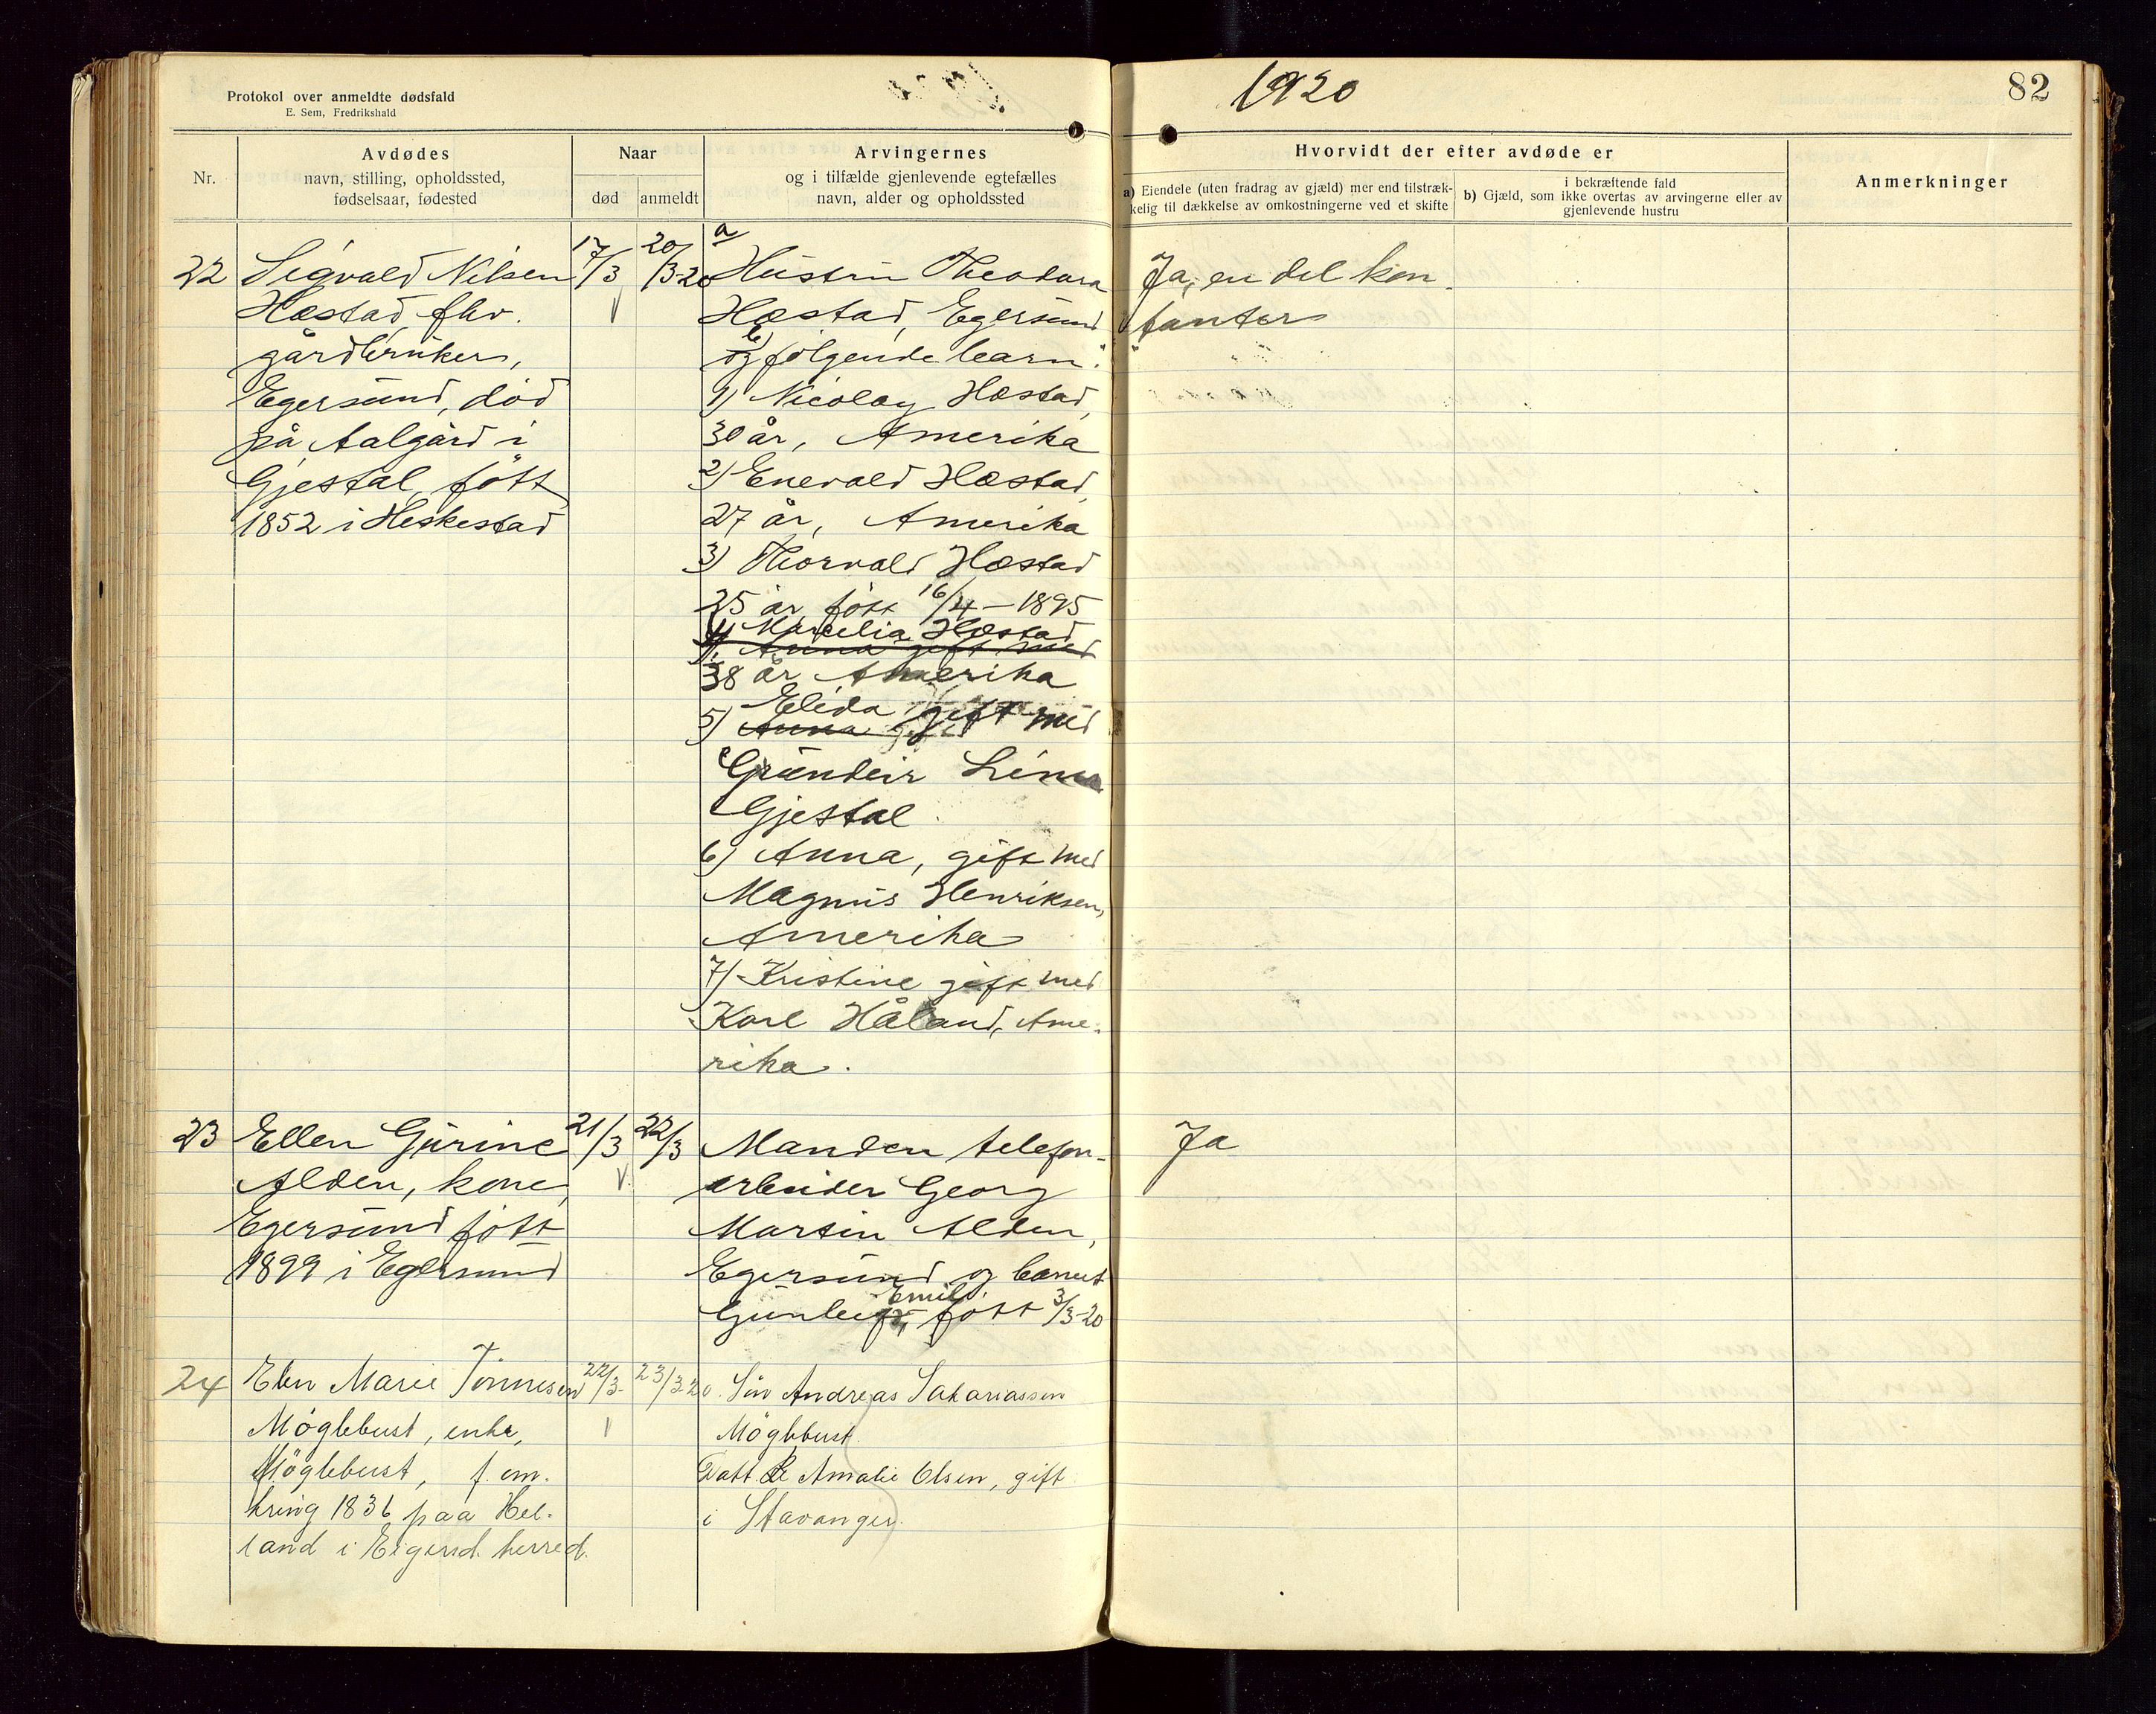 Protokol over anmeldte dødsfald
E. Sem, Fredrikshald
1920
82
Nr.
Avdødes
navn, stilling, opholdssted,
fødselsaar, fødested
Naar
død
anmeldt
Arvingernes
og i tilfælde gjenlevende egtefælles
navn, alder og opholdssted
Hvorvidt der efter avdøde er
a) Eiendele (uten fradrag av gjæld) mer end tilstræk-
kelig til dækkelse av omkostningerne ved et skifte
i bekræftende fald
b) Gjæld, som ikke overtas av arvingerne eller av
gjenlevende hustru
Anmerkninger
22
Sigvald Nilsen
Hæstad, fhv.
gårdbruker,
Egersund, död
på Aalgård i
Gjestal, fött
1852 i Heskestad
17/3
20/3-20
a
Hustru Theodora
Hæstad, Egersund
b)
og følgende barn:
1) Nicolay Hæstad,
30 år, Amerika
2) Enevald Hæstad,
27 år, Amerika
3) Thorvald Hæstad
25 år fött 16/4-1895
4) Marcelia Hæstad
Anna gift med
38 år Amerika
Elida
5) Anna gift med
Gjestal
6) Anna, gift med
Magnus Henriksen,
Amerika
7) Kristine gift med
Karl Håland, Ame-
rika.
Ja, en del kon-
tanter
23
Ellen Gurine
Alden, kone,
Egersund fött
1899 i Egersund
21/3
22/3
Manden telefon-
arbeider Georg
Martin Alden,
Egersund og barnet
Emil
Gunleif, fött 3/3-20
Ja
24
Elen Marie Tönnesen
Möglebust, enke,
Möglebust, f. om-
kring 1836 paa Hel-
land i Eigersd. herred.
22/3-
23/3.20.
Sön Andreas Sakariassen
Möglebust
Datt. Amalie Olsen, gift
i Stavanger.